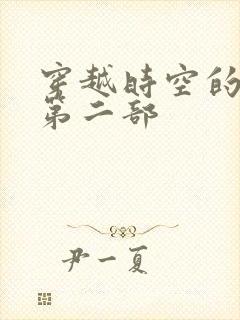 穿越時空的
第二部
尹一夏